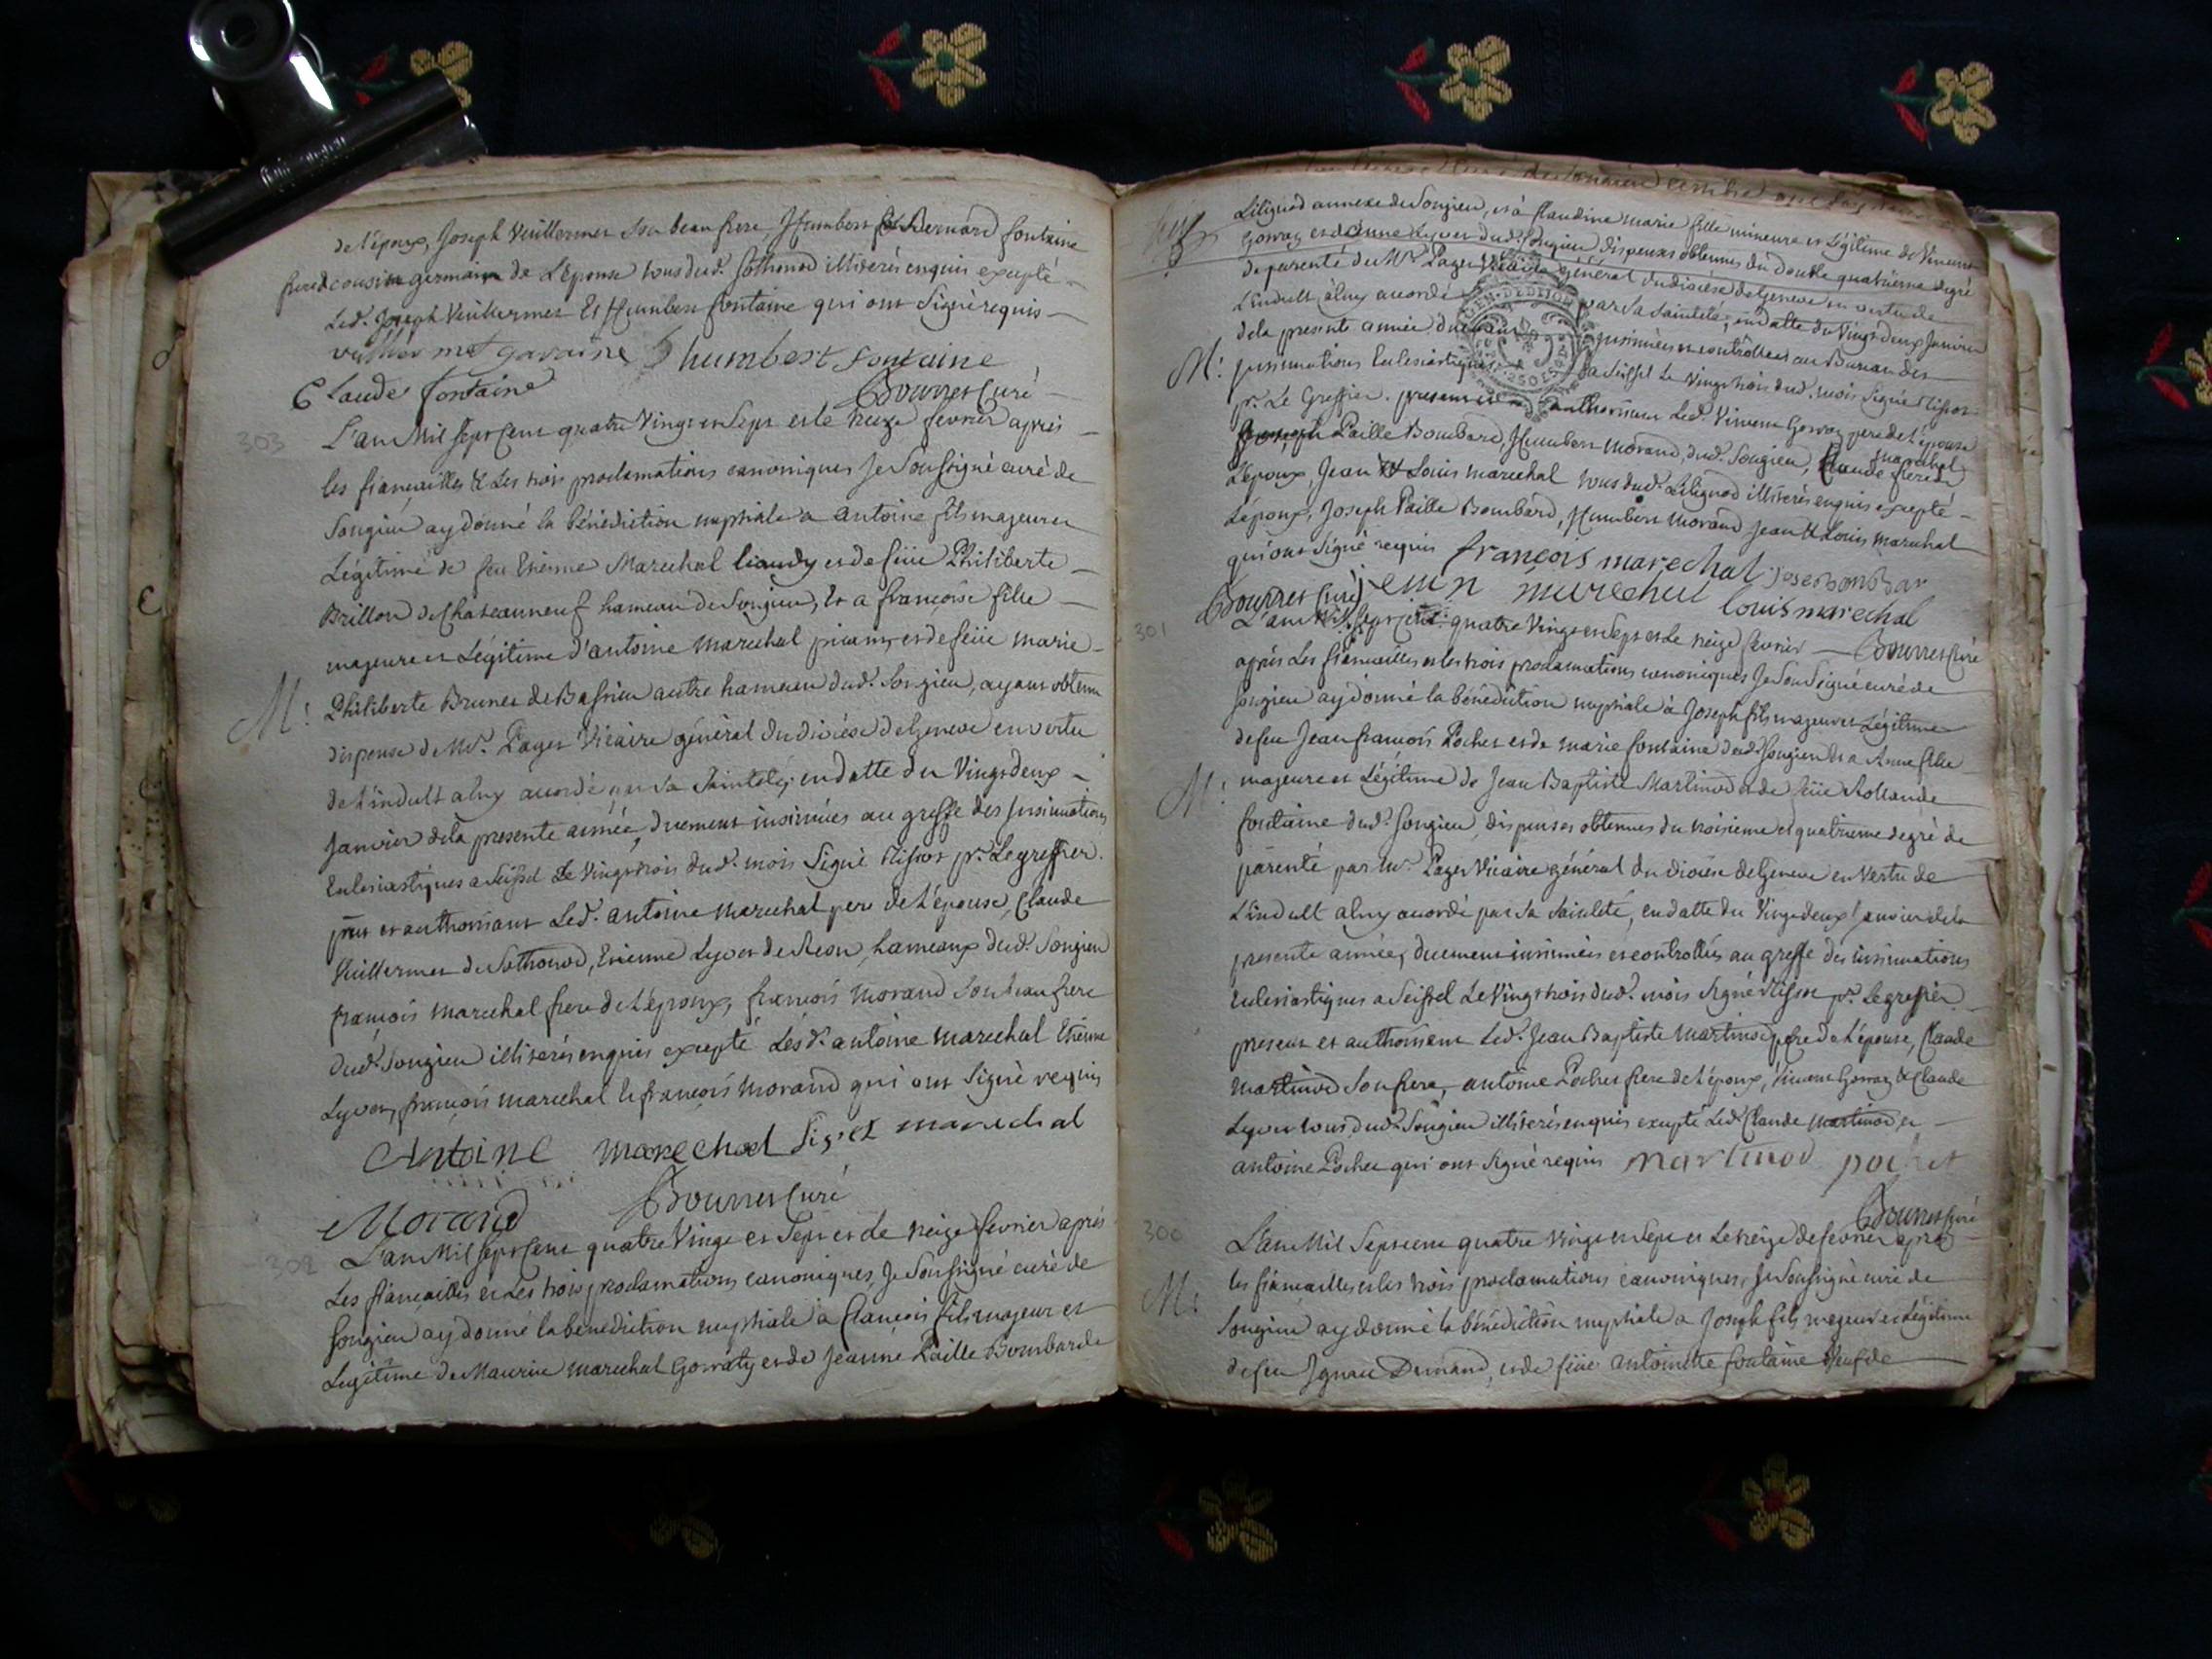 de l'époux, Joseph Vuillermet son beau frere, Humbert & Bernard fontaine
frere & cousin germain de L'épouse tous dud. Sothonod illiterés enquis excepté
Led. Joseph Vuillermet Et Humbert fontaine qui ont Signé requis
humbert fontaine
Claude fontaine
Bourret Curé
303
L'an Mil sept Cent quatre Vingt et Sept et le treize fevrier après
les fiançailles & Les trois proclamations canoniques Je Soussigné curé de
Songieu ay donné la bénédiction nuptiale a antoine fils majeur et
Légitime de feu Etienne Marechal liaudy et de feüe Philiberte
Brillon de Chateauneuf hameau de Songieu, Et a françoise fille
majeure et Légitime d'antoine Marechal et de feüe marie
M:
Philiberte Brunet de Bassieu autre hameau dud. Songieu, ayant obtenu
dispense de Mr. Paget Vicaire général du diocése de Geneve en vertu
de L'indult a luy accordé par Sa Sainteté, en datte du Vingt deux
Janvier de la presente année, duement insinuées au greffe des insinuations
Eclesiastiques a Seissel Le Vingt trois dud. mois Signé Nisson pr. Le greffier.
prst et authorisant Led. antoine Marechal pere de L'épouse, Claude
Vuillermet de Sothonod, Etienne Lyvet de hameaux dud. Songieu
françois Marechal frere de L'époux, françois Morand Son beau frere
dud. Songieu illiterés enquis excepté Lesd. antoine Marechal Etienne
Lyvet, françois Marechal & françois Morand qui ont Signé requis
Antoine marechal marechal
Morand
Bourret Curé
302
L'an Mil sept Cent quatre Vingt et Sept et Le treize fevrier après
Les fiançailles et Les trois proclamations canoniques, Je Soussigné curé de
Songieu ay donné la benediction nuptiale à françois fils majeur et
Legitime de Maurice Marechal et de Jeanne Paille Bombarde
Lilignod annexe de Songieu, et à Claudine Marie fille mineure et Légitime de Vincent
Gorraz et d'anne Lyvet dud. Songieu, dispenses obtenues du double quatrieme degré
de parenté de Mr. Paget Vicaire général du diocése de Geneve en vertu de
L'indult a luy accordé par Sa Sainteté, en datte du Vingt deux Janvier
de la presente année, duement insinuées et controllées au Bureau des
M:
insinuations Eclesiastiques a Seissel Le Vingt trois dud. mois Signé Nisson
pr. Le Greffier. present et authorisant Led. Vincent Gorraz pere de L'épouse
Joseph Paille Bombard, Humbert Morand, dud. Songieu, Claude marechal frere de
L'époux, Jean & Louis Marechal tous dud. Lilignod illiterés enquis excepté
L'époux, Joseph Paille Bombard, Humbert Morand Jean & Louis Marechal
qui ont Signé requis françois marechal
Bourret Curé marechal louis marechal
301
L'an Mil Sept Cent quatre Vingt et Sept et Le treize fevrier Bourret Curé
après Les fiançailles et les trois proclamations canoniques Je Soussigné curé de
Songieu ay donné la bénédiction nuptiale à Joseph fils majeur et Légitime
de feu Jean françois Pochet et de marie fontaine dud. Songieu Et a Anne fille
M:
majeure et Légitime de Jean Baptiste Martinod et de feüe Rollande
fontaine dud. Songieu, dispenses obtenues du troisieme et quatrieme degré de
parenté par Mr. Paget Vicaire général du diocése de Geneve en Vertu de
L'indult a luy accordé par Sa Sainteté, en datte du Vingt deux Janvier de la
presente année, duement insinuées et controllées au greffe des insinuations
eclesiastiques a Seissel Le Vingt trois dud. mois Signé Nisson pr. Le greffier
present et authorisant Led. Jean Baptiste Martinod pere de L'épouse, Claude
Martinod Son frere, antoine Pochet frere de L'époux, Vincent Gorraz & Claude
Lyvet tous dud. Songieu illiterés enquis excepté Led. Claude Martinod et
antoine Pochet qui ont Signé requis Martinod pochet
Bourret Curé
300
L'an Mil Sept Cent quatre Vingt et Sept et Le treize de fevrier après
M:
les fiançailles et les trois proclamations canoniques, Je Soussigné curé de
Songieu ay donné la bénédiction nuptiale a Joseph fils majeur et Légitime
de feu Ignace et de feüe antoinette fontaine Veuf de